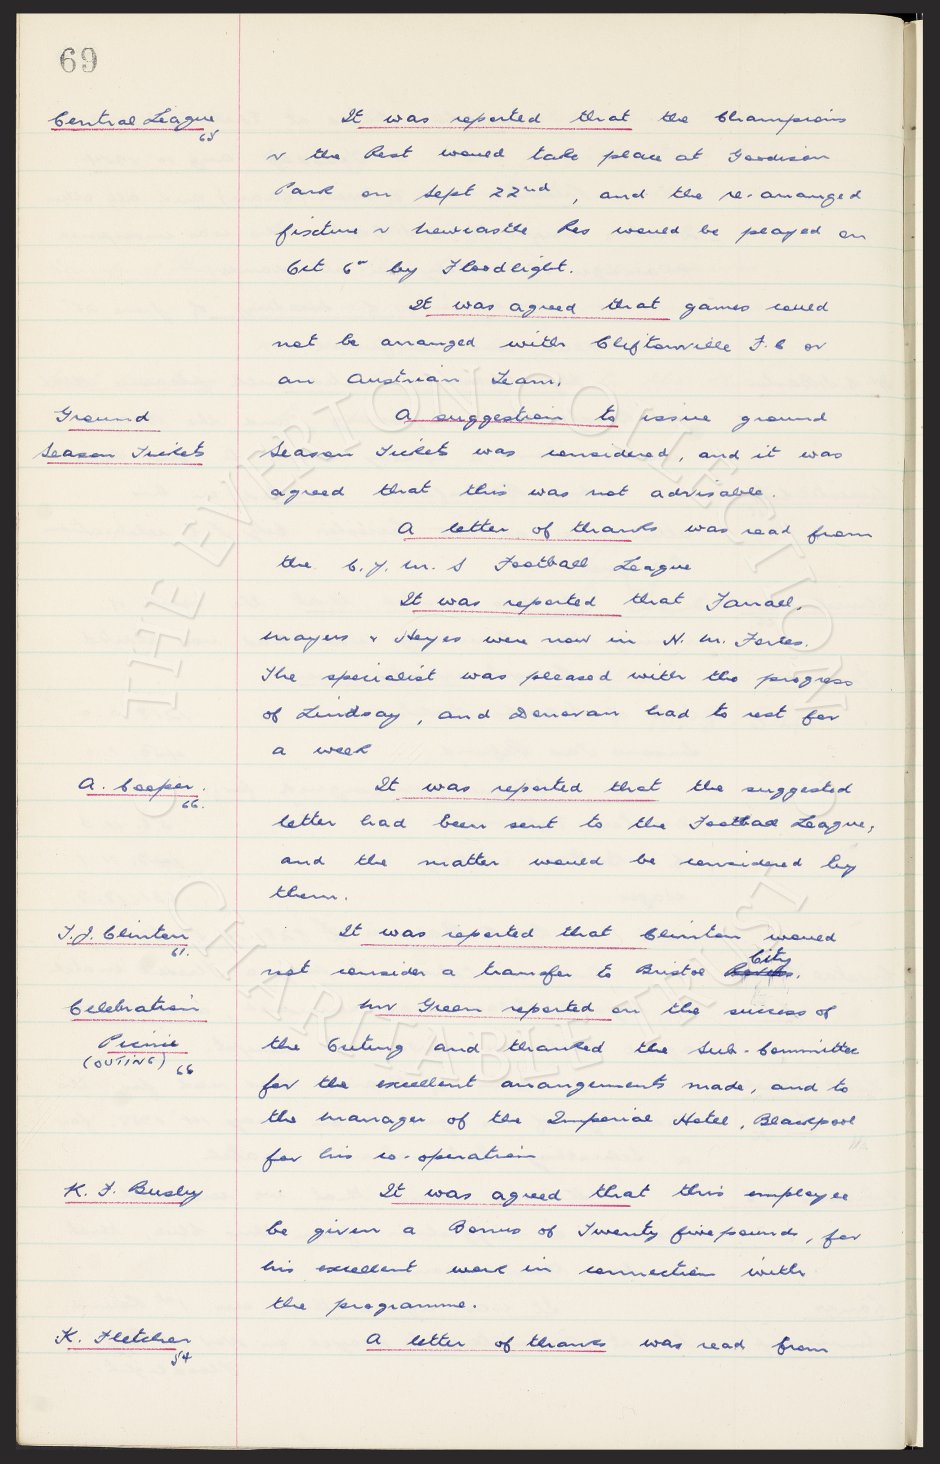 69
Central League
65
It was reported that the Champions
v the Rest would take place at Goodison
Park on Sept 22nd, and the re-arranged
fixture v Newcastle Res would be played on
Oct 6th by Floodlight.
It was agreed that games could
not be arranged with Cliftonville F.C or
an Austrian Team.
Ground
Season Tickets
A suggestion to issue ground
Season Tickets was considered, and it was
agreed that this was not advisable.
A letter of thanks was read from
the C.Y.M.S Football League
It was reported that Farrall,
Mayers & Heyes were now in N.M. Forces.
The specialist was pleased with the progress
of Lindsay, and Donovan had to rest for
a week
A. Cooper.
66.
It was reported that the suggested
letter had been sent to the Football League,
and the matter would be considered by
them.
T.J. Clinton
61.
It was reported that Clinton would
not consider a transfer to Bristol Rovers. City
Celebration
Picnic
(OUTING) 66
Mr Green reported on the success of
the Outing and thanked the Sub-Committee
for the excellent arrangements made, and to
the Manager of the Imperial Hotel, Blackpool
for his co-operation
K. F. Busby
It was agreed that this employee
be given a Bonus of Twenty five pounds, for
his excellent work in connection with
the programme.
K. Fletcher
54
A letter of thanks was read from
THE EVERTON COLLECTION
CHARITABLE TRUST